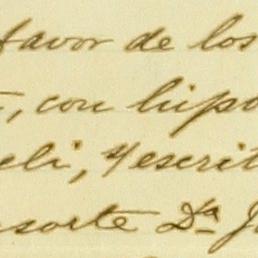 favor de los
, con hipo
eli, y escrit
sorte Da J